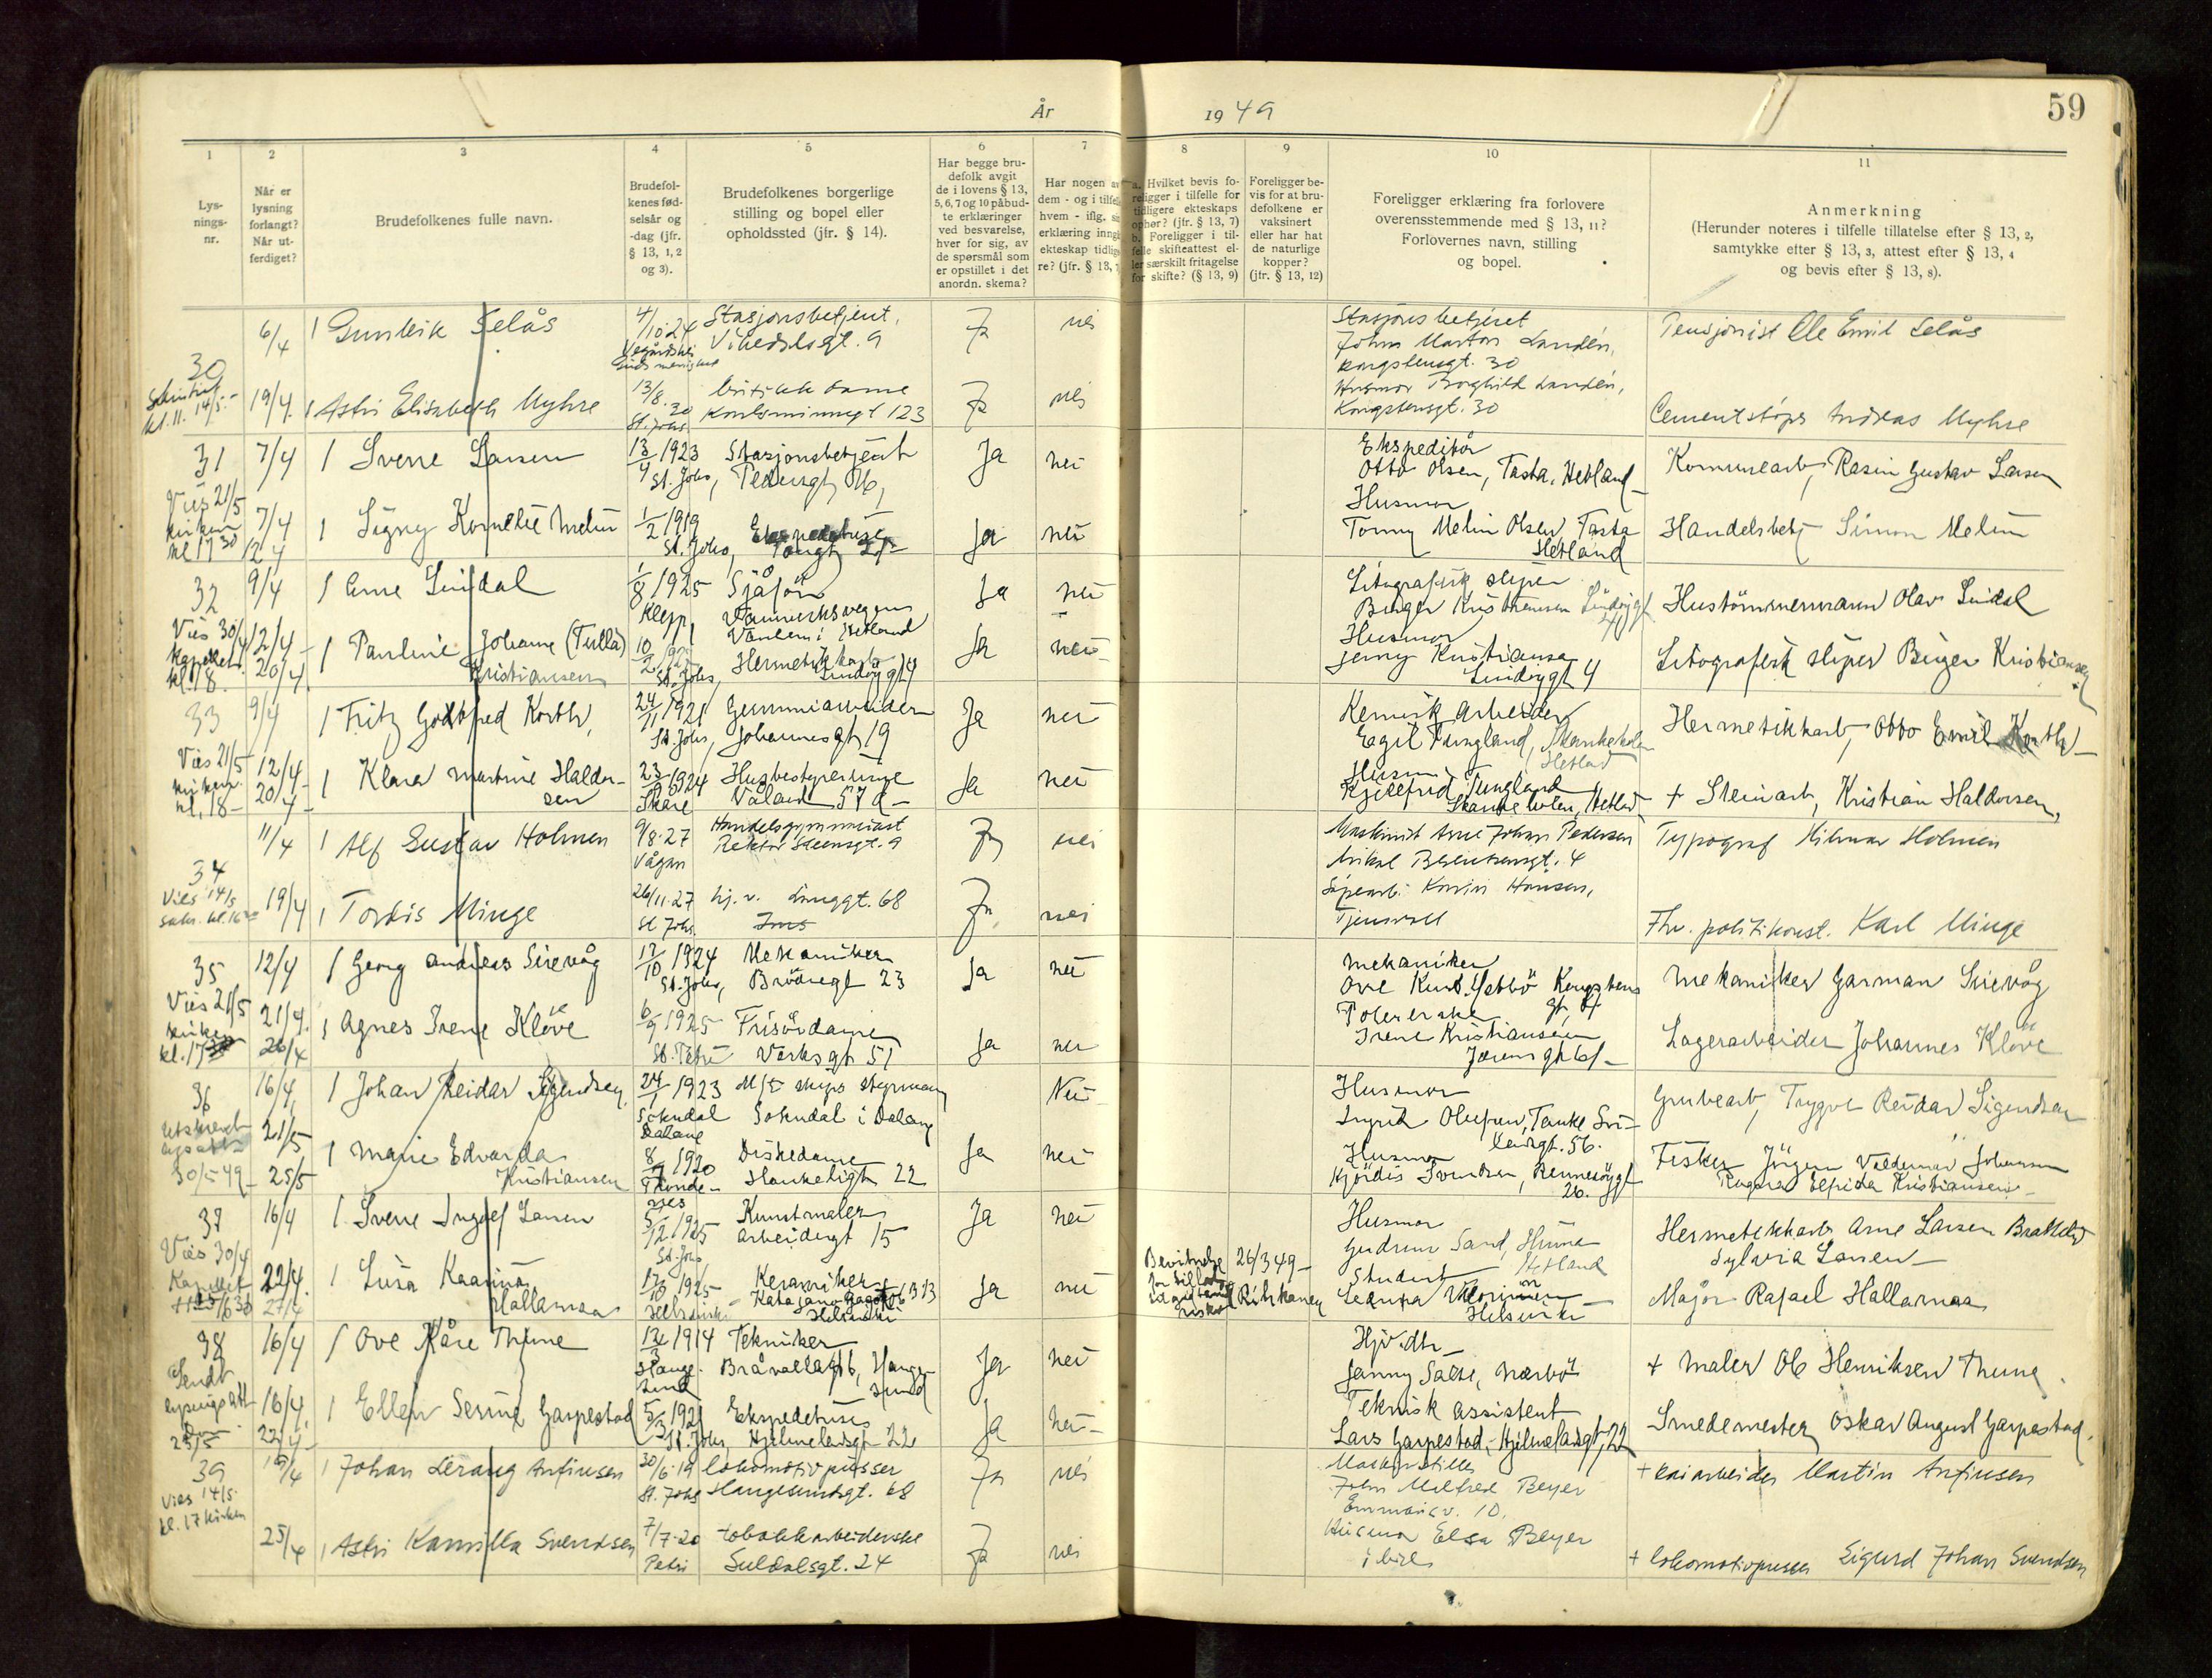 År 1949
59
1
2
3
4
5
6
7
8
9
10
11
Lysningsnr.
Når er lysning forlangt? Når utferdiget?
Brudefolkenes fulle navn.
Brudefolkenes fødselsår og -dag (jfr. § 13, 1, 2 og 3).
Brudefolkenes borgerlige stilling og bopel eller opholdssted (jfr. § 14).
Har begge brudefolk avgit de i lovens § 13, 5, 6, 7 og 10 påbudte erklæringer ved besvarelse, hver for sig, av de spørsmål som er opstillet i det anordn. skema?
Har nogen av dem - og i tilfelle hvem - iflg. sin erklæring inngått ekteskap tidligere? (jfr. § 13, 7
a. Hvilket bevis foreligger i tilfelle for tidligere ekteskaps ophør? (jfr. § 13, 7)
b. Foreligger i tilfelle skifteattest eller særskilt fritagelse for skifte? (§ 13, 9)
Foreligger bevis for at brudefolkene er vaksinert eller har hat de naturlige kopper? (jfr. § 13, 12)
Foreligger erklæring fra forlovere overensstemmende med § 13, 11? Forlovernes navn, stilling og bopel.
Anmerkning
(Herunder noteres i tilfelle tillatelse efter § 13, 2, samtykke efter § 13, 3, attest efter § 13, 4 og bevis efter § 13, 8).
30
kl. 11. 14/5.
6/4 1 Gunleik Selås 4/10.24 Stasjonsbetjent, Ja nei
Stasjonsbetjent John Marton Landén, Kongstensgt. 30
Pensjonist Ole Emil Selås
19/4. 1 Astri Elisabeth Myhre 13/8.20 St. Johs. 123 Ja nei
Husmor Borghild Landén, Kongstensgt. 30
Cementstøper Andreas Myhre
31 7/4 1 Sverre Larsen 13/4 1923 St. Johs, Stasjonsbetjent Ja nei
Ekspeditør Otto Olsen, Tasta, Hetland
Kommunearb, Rasin Gustav Larsen
Vies 21/5 kirken kl 17 30
7/4 12/4 1 Signy Kornelie Melin 1/2 1919 St. Johs, Ja nei
Husmor Tonny Melin Olsen, Tasta Hetland
Handelsbetj Simon Melin
32 9/4 1 Arne Lindal 1/8 1925 Klepp, Sjåfør Hetland Ja nei
Litografisk sliper Birger Kristiansen
Hustømmermann Olav Lindal
Vies 30/4 Kapellet kl. 18.
12/4 20/4 1 Pauline Johanne (Tulla) Kristiansen St. Johs, Lindøygt 4 Ja nei
Husmor Jenny Kristiansen Lindøygt 4
Litografisk sliper Birger Kristiansen
33 9/4 1 Fritz Godtfred Korth, 24/11 1921 St. Johs, Gummiarbeider Johannesgt 19 Ja nei
Kemisk arbeider Egil Tungland, Hetland
Hermetikkarb, Otto Emil Korth
Vies 21/5 kirken kl. 18
12/4 20/4 1 Klara Martine Haldorsen 1924 Skåre Husbestyrerinne Våland 57 a Ja nei
Husm Tungland Hetland
+ Steinarb, Kristian Haldorsen,
34 11/4 1 Alf Gustav Holmen 9/8.27 Vågan Handelsgymnasiast Rektor Steensgt. 9 Ja nei
Maskinist Arne Johan Pedersen Mikal Berentsensgt. 4
Typograf Hilmar Holmen
Vies 14/5
19/4 1 Tordis Minge 26/11.27 St Johs. hj. v. Langgt. 68 Ja nei
Karin Hansen, Tjensvoll
Fhv. politikonst. Karl Minge
35 12/4 1 Georg Andreas Sirevåg 17/10 1924 St. Johs, Mekaniker Brödregt 23 Ja nei
Mekaniker Ove Knut
Mekaniker Garman Sirevåg
Vies 21/5 kirken kl. 17
21/4. 26/4 1 Agnes Irene Kløve 6/9 1925 St. Petri Frisördame Verksgt 51 Ja nei
Irene Kristiansen
Lagerarbeider Johannes Kløve
36 16/4, 1 Johan Reidar Sigendsen, 24/1 1923 Sokndal Dalane M/T skips styrmann Sokndal i Dalane Nei
Husmor Ingrid Olufsen, Tanke Svilandsgt. 56.
Grubearb, Trygve Reidar Sigendsen
30/5 49
21/5 25/5 1 Marie Edvarda Kristiansen 1920 Diskedame Hankeligt 22 Ja nei
Husmor Kjördis Svendsen, Rennesöygt 26.
Fisker Jörgen Valdemar Johansen Ragna Elfrida Kristiansen
37 16/4 1 Sverre Ingolf Larsen 5/12 1925 St. Johs Kunstmaler Arbeidergt 15 Ja nei
Husmor Gudrun Sand, Hetland
Hermetikkarb Arne Larsen Sylvia Larsen
Vies 30/4 Kapellet
22/4. 27/4 1 Liisa Kaarina Hallamaa 17/10 1925 Helsinki Keramiker Helsinki Ja nei
26/3 49
Student Helsinki
Major Rafael Hallamaa
38 16/4 1 Ove Kåre Thune 1914 Haugesund Tekniker Haugesund Ja nei
Janny Salte, Nærbö
+ Maler Ole Henriksen Thune.
Sendt lysingsatt
16/4 1 Ellen Serine Garpestad 5/3 1921 St. Johs, Ekspeditrise Hjelmelandsgt 22 Ja nei
Teknisk assistent Lars Garpestad, Hjelmelandsgt, 22
Smedemester Oskar August Garpestad.
39 19/4 1 Johan Lerang Anfinsen 30/6.19 St. Johs lokomotivpusser Haugesundsgt. 68 Ja nei
John Milfred Beyer 10.
+ Kaiarbeider Martin Anfinsen
Vies 14/5. kl. 17 kirken
25/4 1 Astri Kamilla Svendsen 7/7.20 Petri tobakkarbeiderske Suldalsgt. 24 Ja nei
Husmor Elsa Beyer
+ lokomotivpusser Sigurd Johan Svendsen